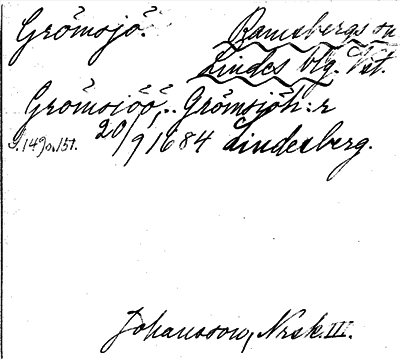 Grömsjö. Ramsbergs sn
Lindes blg. Vst.
Grömsiöö, Grömsjöh:r
S. 149o.151. 20/9 1684 Lindesberg.
Johansson, Nrsk. III.